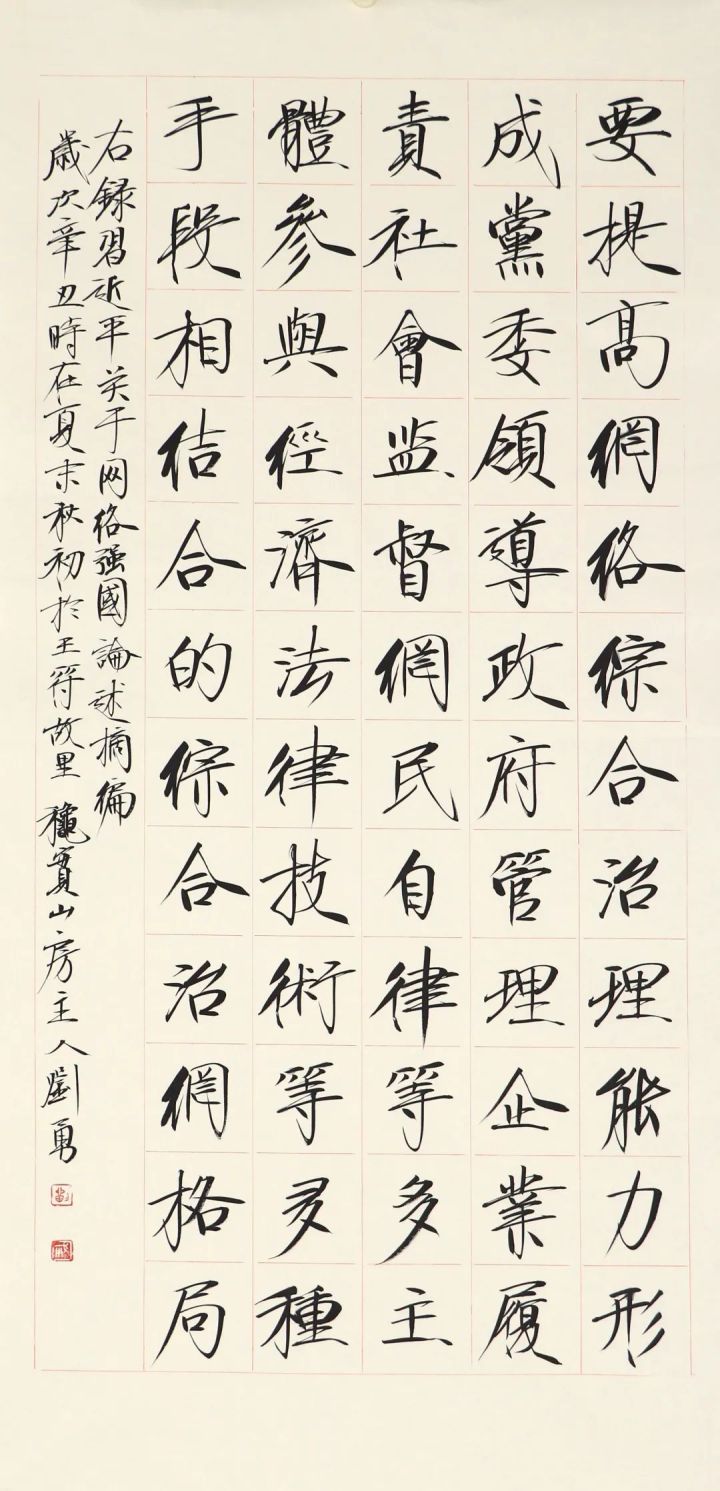 要提高網络綜合治理能力形
成黨委領導政府管理企業履
責社會监督網民自律等多主
體參與經濟法律技術等多種
手段相结合的綜合治網格局
右録習近平关于网络强國論述摘编
歲次辛丑時在夏末秋初於王符故里 龝實山房主人劉勇